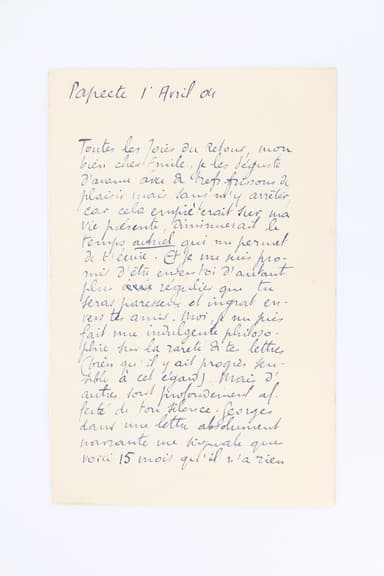 Papeete 1er Avril 04
Toutes les Joies du Retour, mon
bien cher Emile. je les déguste
d'avance avec de brefs frissons de
plaisir mais sans m'y arrêter,
car cela empièterait sur ma
vie présente, diminuerait le
temps actuel qui me permet
de t'écrire. Et je me suis pro-
mis d'être envers toi d'autant
plus régulier que tu
seras paresseux et ingrat en-
vers tes amis. Moi, je me suis
fait une indulgente philoso-
phie sur la rareté de tes lettres
(bien qu'il y ait progrès sen-
sible à cet égard). Mais d'
autres sont profondément af-
fecté de ton silence. Georges
dans une lettre absolument
navrante me signale que
voici 15 mois qu'il n'a rien